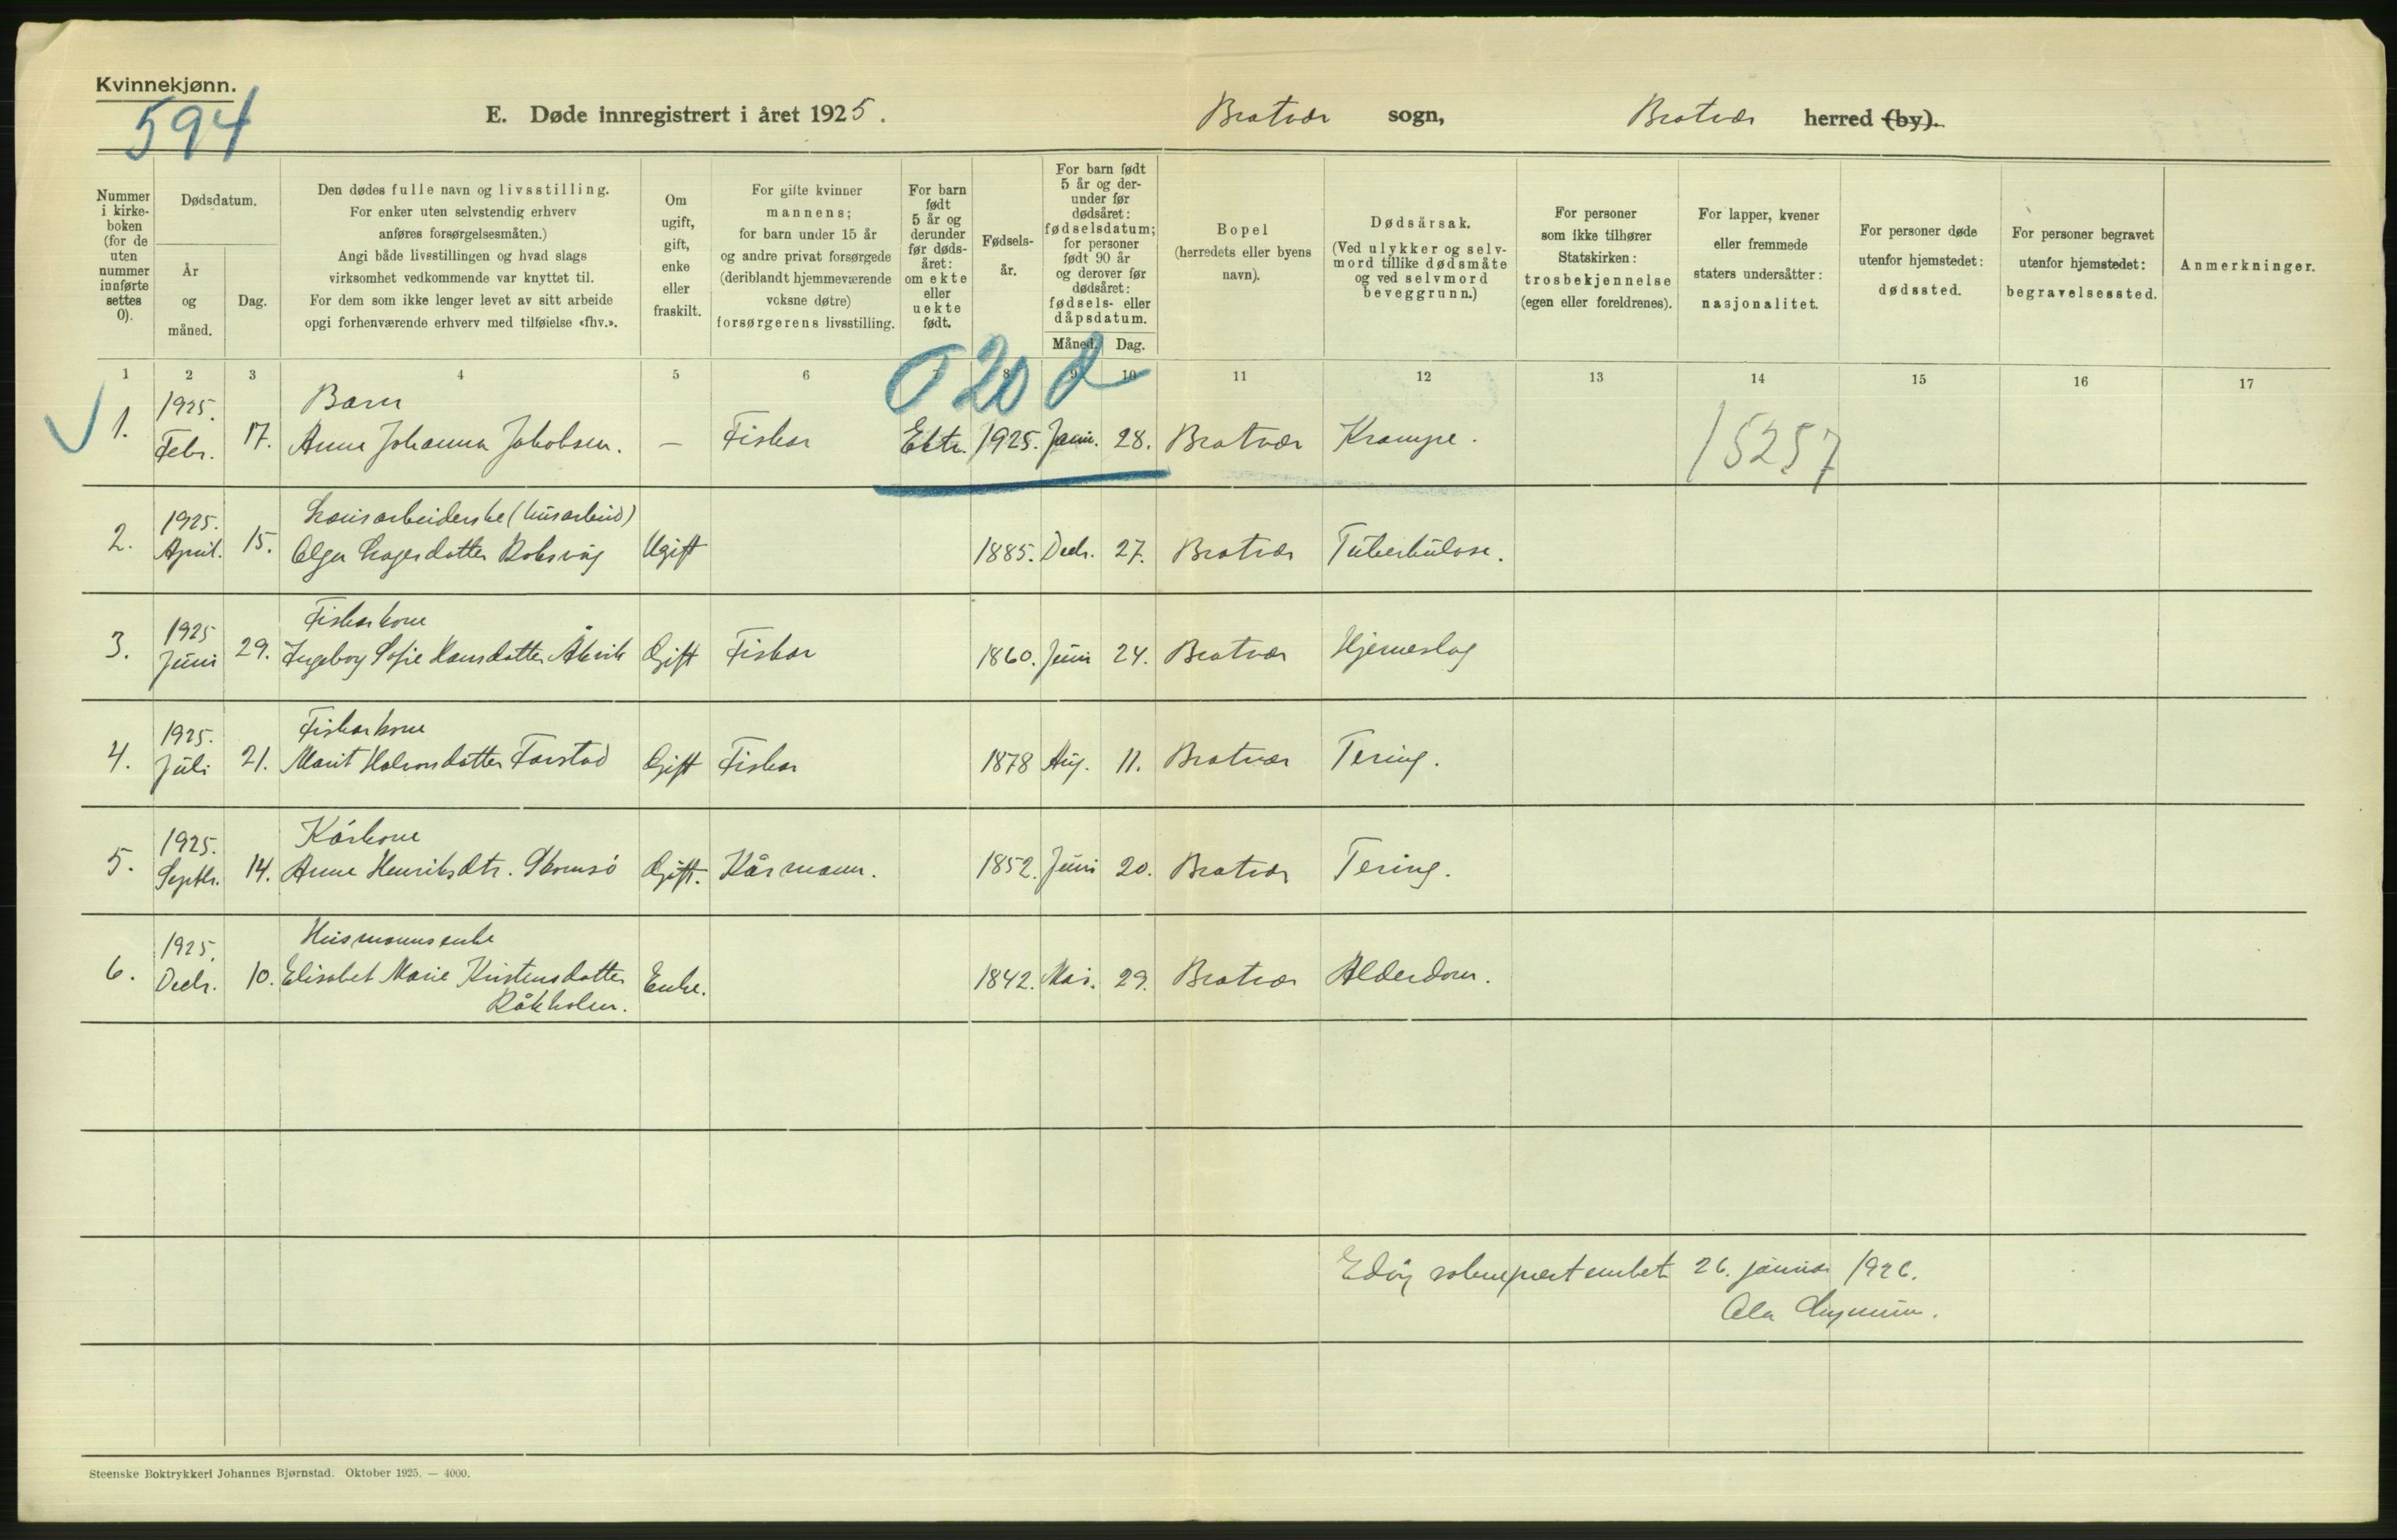 Kvinnekjønn.
594
E. Døde innregistrert i året 1925.
Bratvær sogn,
Bratvær herred (by).
Nummer i kirke-boken (for de uten nummer innførte settes 0).
Dødsdatum.
År og måned.
Dag.
Den dødes fulle navn og livsstilling.
For enker uten selvstendig erhverv
anføres forsørgelsesmåten.)
Angi både livsstillingen og hvad slags
virksomhet vedkommende var knyttet til.
For dem som ikke lenger levet av sitt arbeide
opgi forhenværende erhverv med tilføielse «fhv.».
Om ugift, gift, enke eller fraskilt.
For gifte kvinner
mannens;
for barn under 15 år
og andre privat forsørgede
(deriblandt hjemmeværende
voksne døtre)
forsørgerens livsstilling.
For barn født 5 år og derunder før døds-året: om ekte eller uekte født.
Fødsels-år.
For barn født 5 år og der-under før dødsåret: fødselsdatum; for personer født 90 år og derover før dødsåret: fødsels- eller dåpsdatum.
Måned. Dag.
Bopel
(herredets eller byens
navn).
Dødsårsak.
(Ved ulykker og selv-
mord tillike dødsmåte
og ved selvmord
beveggrunn.)
For personer
som ikke tilhører
Statskirken:
trosbekjennelse
(egen eller foreldrenes).
For lapper, kvener
eller fremmede
staters undersåtter:
nasjonalitet.
For personer døde
utenfor hjemstedet:
dødssted.
For personer begravet
utenfor hjemstedet:
begravelsessted.
Anmerkninger.
1 2 3 4 5 6 7 8 9 10 11 12 13 14 15 16 17
020 d
1925. Barn
1. Febr. 17. Anne Johanna Jakobsen. — Fiskar Ekte. 1925. Janu. 28. Bratvær Krampe. 15257
1925. (husarbeid)
2. April. 15. Olga Ugift 1885. Decb. 27. Bratvær Tuberkulose.
1925 Fiskarkone
3. Juni 29. Ingeborg Sofie Hansdatter Åkvik Gift Fiskar 1860. Juni 24. Bratvær Hjerneslag
1925. Fiskarkone
4. Juli 21. Marit Halvorsdatter Forstad Gift Fiskar 1878 Aug. 11. Bratvær Tering.
1925. Kårkone
5. Septbr. 14. Anne Henriksdtr. Skomsö Gift. Kårmann. 1852. Juni 20. Bratvær Tering.
1925. Husmannsenke
6. Decbr. 10. Elisabet Marie Kristensdatter Enke. 1842. Mai. 29. Bratvær Alderdom.
Råkholm.
Edöy sokneprestembet 26. januar 1926.
Ola
Steenske Boktrykkeri Johannes Bjørnstad. Oktober 1925. — 4000.